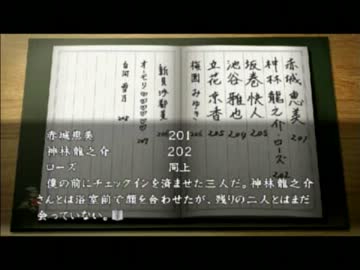 赤城恵美 201
神林龍之介 ローズ 202
坂巻快人
池谷雅也 204
立花京香 205
梅園みゆき
新見沙都美
オーゼリ
207
208
赤城恵美 201
神林龍之介 202
ローズ 同上
僕の前にチェックインを済ませた三人だ。神林龍之介
さんとは浴室前で顔を合わせたが、残りの二人とはまだ
会っていない。